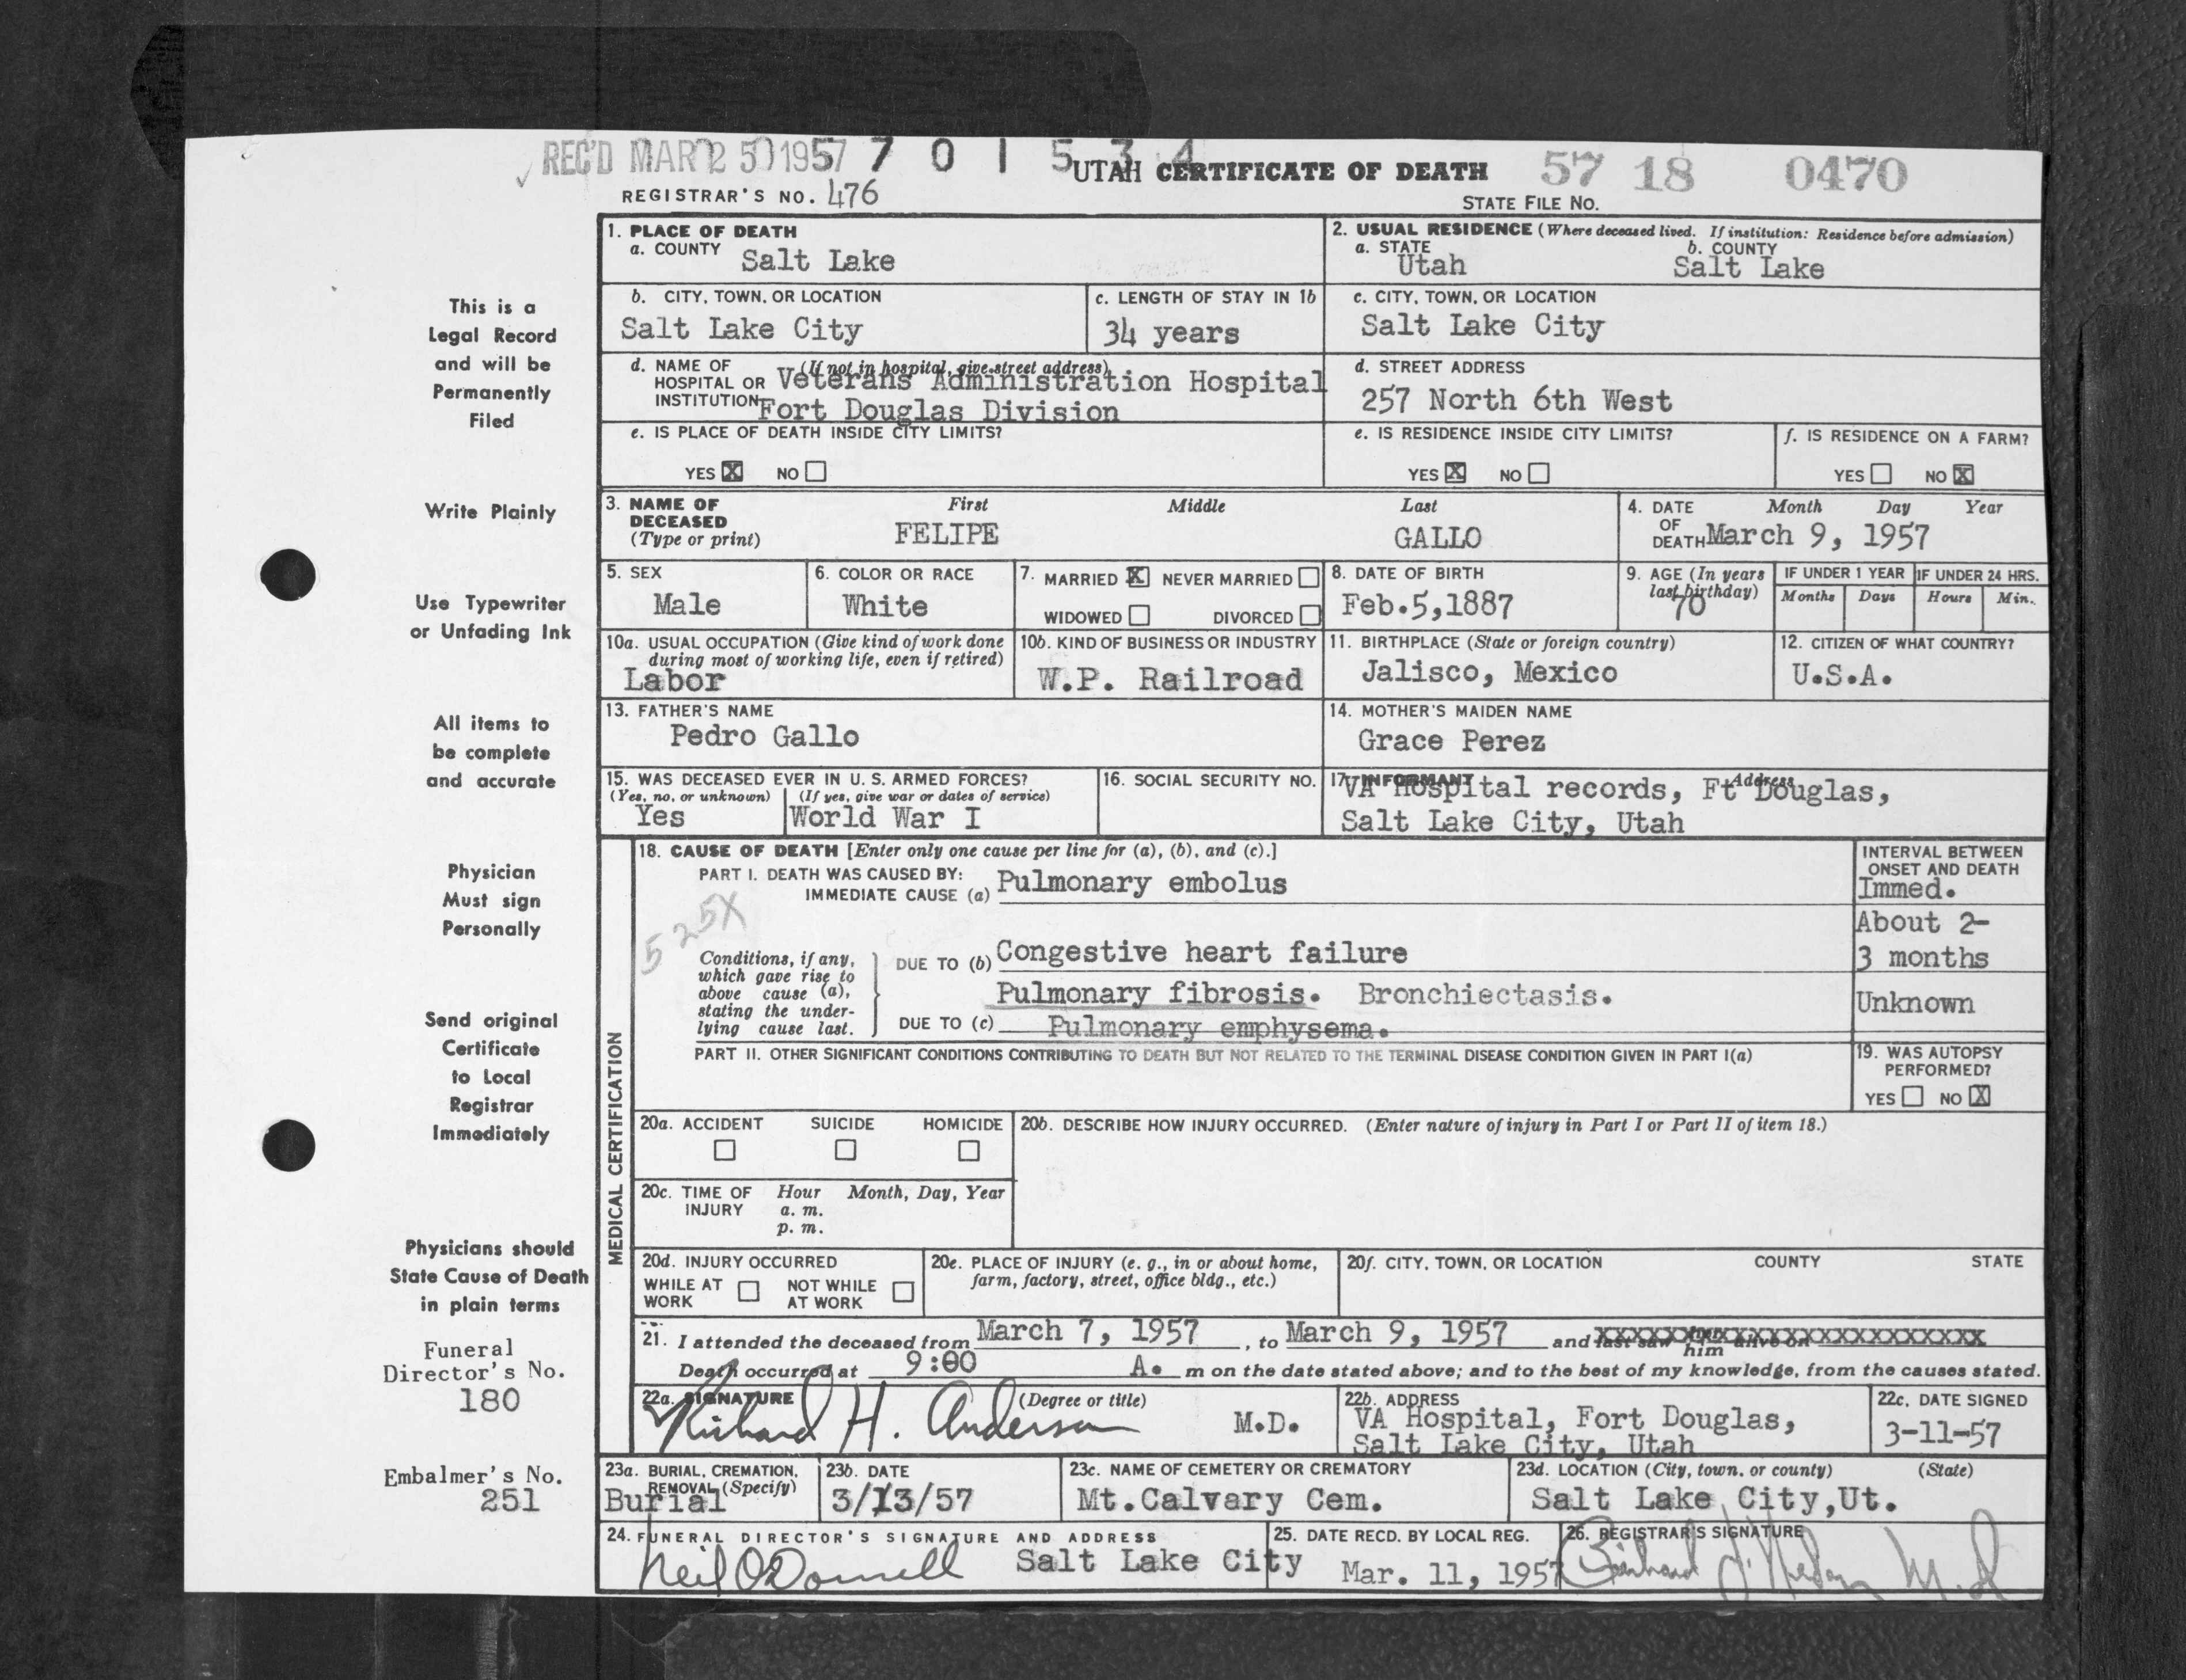 REC'D MAR 25 1957 7 0 1 5 3 4
UTAH CERTIFICATE OF DEATH 57 18 0470
REGISTRAR'S NO. 476
STATE FILE NO.
1. PLACE OF DEATH
a. COUNTY Salt Lake
2. USUAL RESIDENCE (Where deceased lived. If institution: Residence before admission)
a. STATE Utah b. COUNTY Salt Lake
b. CITY, TOWN, OR LOCATION Salt Lake City
c. LENGTH OF STAY IN 1b 34 years
c. CITY, TOWN, OR LOCATION Salt Lake City
d. NAME OF HOSPITAL OR INSTITUTION (If not in hospital, give street address) Veterans Administration Hospital
Fort Douglas Division
d. STREET ADDRESS
257 North 6th West
e. IS PLACE OF DEATH INSIDE CITY LIMITS?
YES X NO
e. IS RESIDENCE INSIDE CITY LIMITS?
YES X NO
f. IS RESIDENCE ON A FARM?
YES NO X
3. NAME OF DECEASED (Type or print)
First Middle Last
FELIPE GALLO
4. DATE OF DEATH Month Day Year
March 9, 1957
5. SEX
Male
6. COLOR OR RACE
White
7. MARRIED X NEVER MARRIED
WIDOWED DIVORCED
8. DATE OF BIRTH
Feb.5,1887
9. AGE (In years last birthday)
70
IF UNDER 1 YEAR
Months Days
IF UNDER 24 HRS.
Hours Min.
10a. USUAL OCCUPATION (Give kind of work done during most of working life, even if retired)
Labor
10b. KIND OF BUSINESS OR INDUSTRY
W.P. Railroad
11. BIRTHPLACE (State or foreign country)
Jalisco, Mexico
12. CITIZEN OF WHAT COUNTRY?
U.S.A.
13. FATHER'S NAME
Pedro Gallo
14. MOTHER'S MAIDEN NAME
Grace Perez
15. WAS DECEASED EVER IN U. S. ARMED FORCES?
(Yes, no, or unknown) (If yes, give war or dates of service)
Yes World War I
16. SOCIAL SECURITY NO.
17. INFORMANT Address
VA Hospital records, Ft Douglas,
Salt Lake City, Utah
MEDICAL CERTIFICATION
18. CAUSE OF DEATH [Enter only one cause per line for (a), (b), and (c).]
INTERVAL BETWEEN ONSET AND DEATH
PART I. DEATH WAS CAUSED BY:
IMMEDIATE CAUSE (a) Pulmonary embolus
Immed.
525X
Conditions, if any, which gave rise to above cause (a), stating the underlying cause last.
DUE TO (b) Congestive heart failure
About 2-
3 months
Pulmonary fibrosis. Bronchiectasis.
DUE TO (c) Pulmonary emphysema.
Unknown
PART II. OTHER SIGNIFICANT CONDITIONS CONTRIBUTING TO DEATH BUT NOT RELATED TO THE TERMINAL DISEASE CONDITION GIVEN IN PART I(a)
19. WAS AUTOPSY PERFORMED?
YES NO X
20a. ACCIDENT SUICIDE HOMICIDE
20b. DESCRIBE HOW INJURY OCCURRED. (Enter nature of injury in Part I or Part II of item 18.)
20c. TIME OF INJURY Hour Month, Day, Year
a. m.
p. m.
20d. INJURY OCCURRED
WHILE AT WORK NOT WHILE AT WORK
20e. PLACE OF INJURY (e. g., in or about home, farm, factory, street, office bldg., etc.)
20f. CITY, TOWN, OR LOCATION COUNTY STATE
21. I attended the deceased from March 7, 1957, to March 9, 1957 and last saw him alive on
Death occurred at 9:00 A. m on the date stated above; and to the best of my knowledge, from the causes stated.
22a. SIGNATURE (Degree or title)
Richard H. Anderson M.D.
22b. ADDRESS
VA Hospital, Fort Douglas,
Salt Lake City, Utah
22c. DATE SIGNED
3-11-57
23a. BURIAL, CREMATION, REMOVAL (Specify)
Burial
23b. DATE
3/13/57
23c. NAME OF CEMETERY OR CREMATORY
Mt.Calvary Cem.
23d. LOCATION (City, town, or county) (State)
Salt Lake City,Ut.
24. FUNERAL DIRECTOR'S SIGNATURE AND ADDRESS
Neil O'Donnell Salt Lake City
25. DATE RECD. BY LOCAL REG.
Mar. 11, 1957
26. REGISTRAR'S SIGNATURE
This is a
Legal Record
and will be
Permanently
Filed
Write Plainly
Use Typewriter
or Unfading Ink
All items to
be complete
and accurate
Physician
Must sign
Personally
Send original
Certificate
to Local
Registrar
Immediately
Physicians should
State Cause of Death
in plain terms
Funeral
Director's No.
180
Embalmer's No.
251